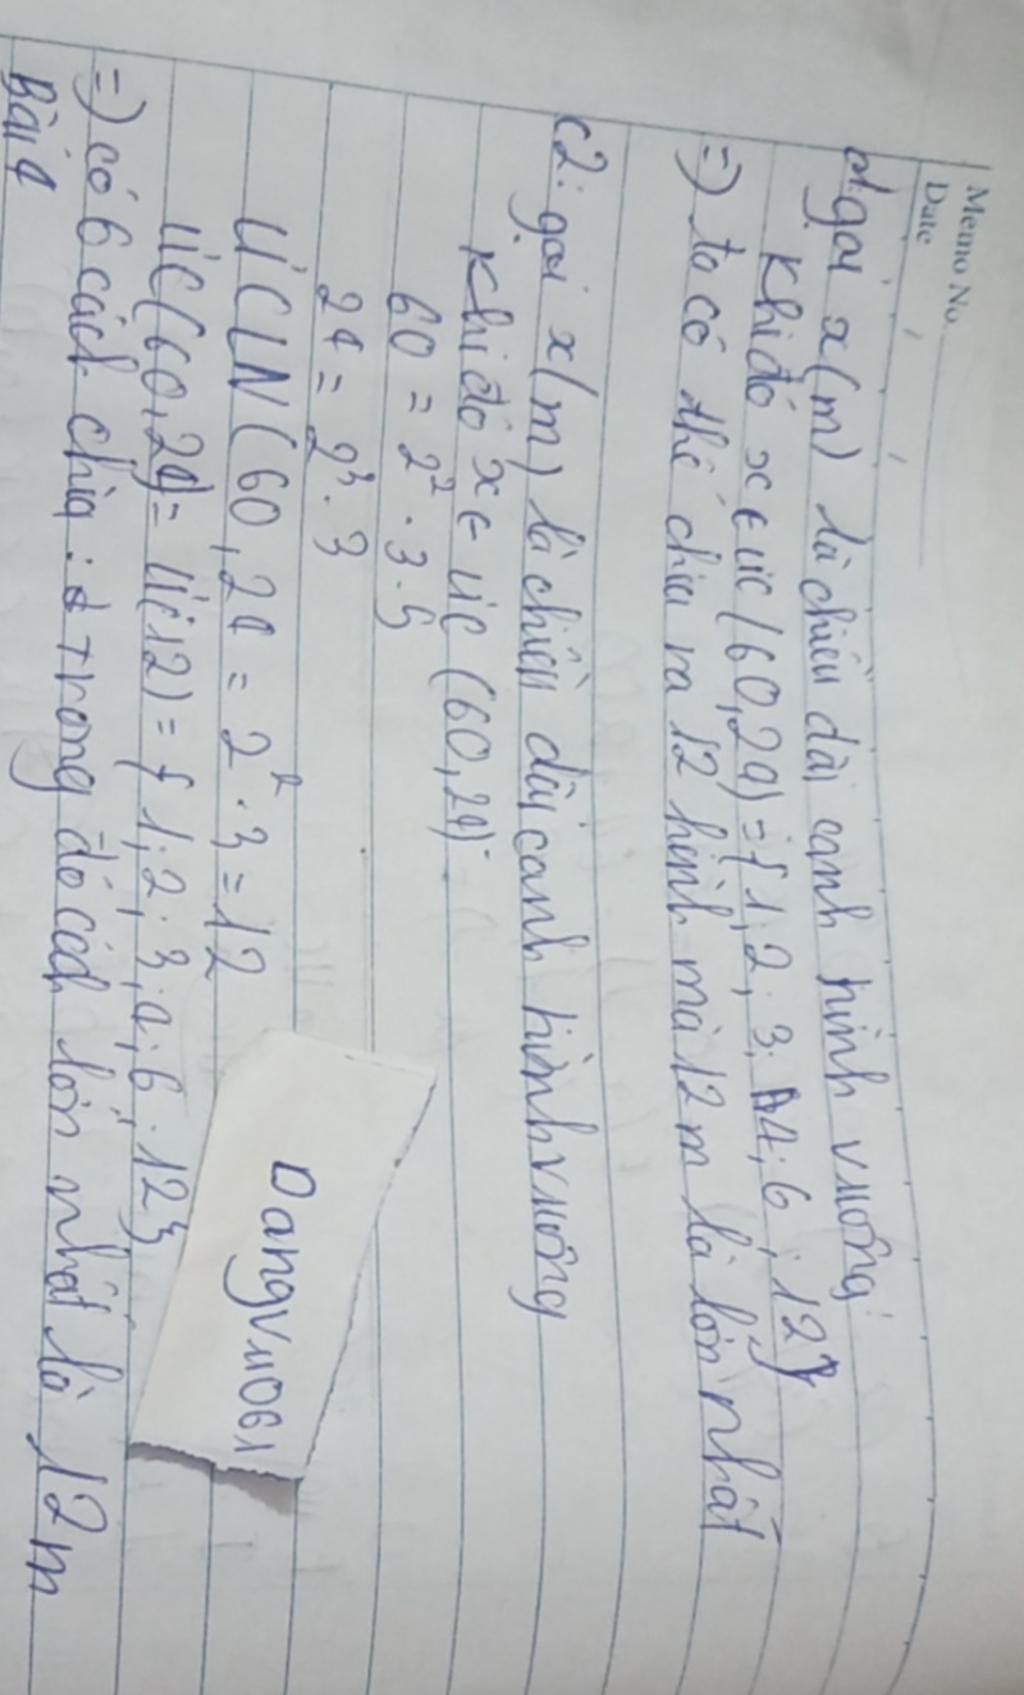 Memo No.
Date
gọi x(m) là chiều dài cạnh hình vuông
Khi đó x ∈ ưc (60,24) = {1; 2; 3; 4; 6; 12}
=) ta có thể chia ra 12 hình mà 12 m là lớn nhất
c2: gọi x(m) là chiều dài cạnh hình vuông
Khi đó x ∈ ưc (60,24)
60 = 2² . 3 . 5
24 = 2³ . 3
ƯCLN (60, 24 = 2² . 3 = 12
ưc(60, 24) = ư(12) = { 1; 2; 3; 4; 6; 12}
Dangvu0061
=) có 6 cách chia : trong đó cách lớn nhất là 12m
Bài 4